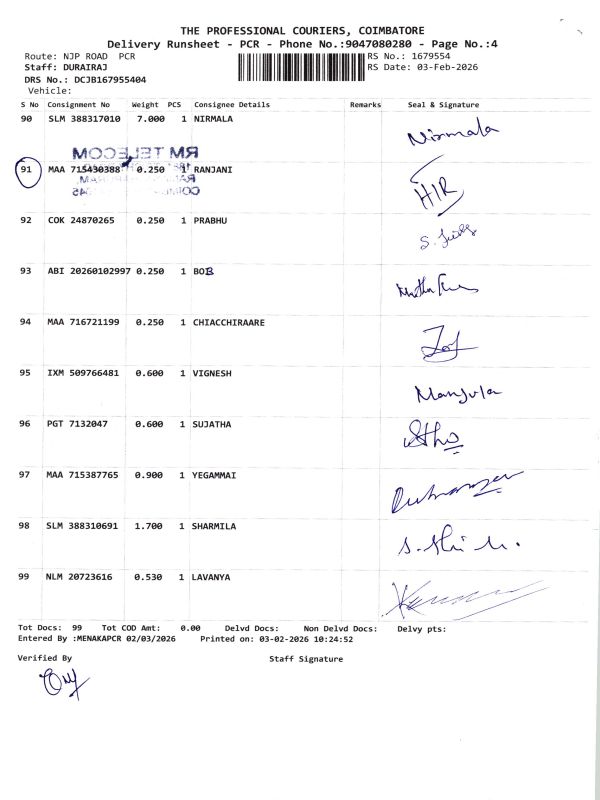 THE PROFESSIONAL COURIERS, COIMBATORE
Delivery Runsheet - PCR - Phone No.:9047080280 - Page No.:4
Route: NJP ROAD PCR
RS No.: 1679554
Staff: DURAIRAJ
RS Date: 03-Feb-2026
DRS No.: DCJB167955404
Vehicle:
S No Consignment No Weight PCS Consignee Details Remarks Seal & Signature
90 SLM 388317010 7.000 1 NIRMALA Nirmala
RM TELECOM
91 MAA 715430388 0.250 1 RANJANI
92 COK 24870265 0.250 1 PRABHU
93 ABI 20260102997 0.250 1 BOB
94 MAA 716721199 0.250 1 CHIACCHIRAARE
95 IXM 509766481 0.600 1 VIGNESH Manjula
96 PGT 7132047 0.600 1 SUJATHA
97 MAA 715387765 0.900 1 YEGAMMAI
98 SLM 388310691 1.700 1 SHARMILA
99 NLM 20723616 0.530 1 LAVANYA
Tot Docs: 99 Tot COD Amt: 0.00 Delvd Docs: Non Delvd Docs: Delvy pts:
Entered By :MENAKAPCR 02/03/2026 Printed on: 03-02-2026 10:24:52
Verified By Staff Signature